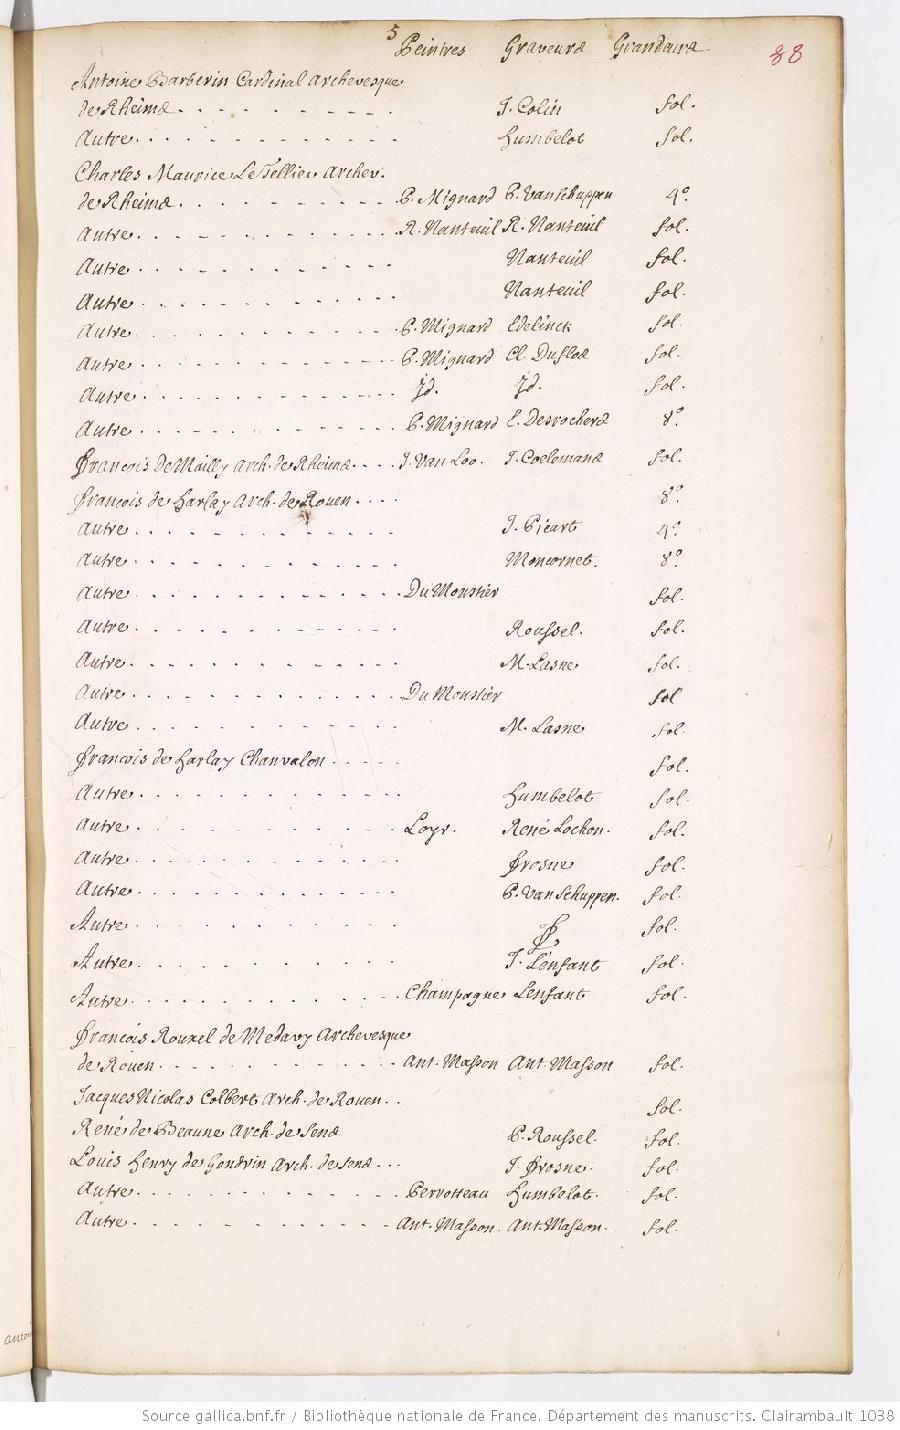 5
Peintres Graveurs Grandeurs
88
Antoine Barberin Cardinal archevesque
de Rheims. . . . . . . . . . J. Colin fol.
Autre. . . . . . . . . . . . Humbelot fol.
Charles Maurice LeTellier archev.
de Rheims. . . . . . . . . . P. Mignard P. Vanschuppen 4º.
Autre. . . . . . . . . . . . R. Nanteuil R. Nanteuil fol.
Autre. . . . . . . . . . . . Nanteuil fol.
Autre. . . . . . . . . . . . Nanteuil fol.
Autre. . . . . . . . . . . . P. Mignard Edelinck fol.
Autre. . . . . . . . . . . . P. Mignard Cl. Duflos fol.
Autre. . . . . . . . . . . . Jd. Jd. fol.
Autre. . . . . . . . . . . . P. Mignard E. Desrochers 8º.
François de Mailly arch. de Rheims. . . . J. Van Loo. J. Coelemans fol.
François de Harlay Arch. de Rouen. . . . 8º.
Autre. . . . . . . . . . . . J. Picart 4º.
Autre. . . . . . . . . . . . Moncornet. 8º.
Autre. . . . . . . . . . . . DuMonstier fol.
Autre. . . . . . . . . . . . Roussel. fol.
Autre. . . . . . . . . . . . M. Lasne fol.
Autre. . . . . . . . . . . . DuMonstier fol
Autre. . . . . . . . . . . . M. Lasne fol.
François de Harlay Chanvalon. . . . . fol.
Autre. . . . . . . . . . . . Humbelot fol.
Autre. . . . . . . . . . . . Loyr. René Lochon. fol.
Autre. . . . . . . . . . . . Frosne fol.
Autre. . . . . . . . . . . . P. Van Schuppen. fol.
Autre. . . . . . . . . . . . fol.
Autre. . . . . . . . . . . . J. Lenfant fol.
Autre. . . . . . . . . . . . Champagne Lenfant fol.
François Rouxel de Medavy Archevesque
de Rouen. . . . . . . . . . . Ant. Masson Ant. Masson fol.
Jacques Nicolas Colbert Arch. de Rouen. . . fol.
René de Beaune Arch. de Sens P. Roussel. fol.
Louis Henry de Gondrin Arch. de Sens. . . . J. Frosne. fol.
Autre. . . . . . . . . . . . Pervotteau Humbelot. fol.
Autre. . . . . . . . . . . . Ant. Masson. Ant. Masson. fol.
Source gallica.bnf.fr / Bibliothèque nationale de France. Département des manuscrits. Clairambault 1038